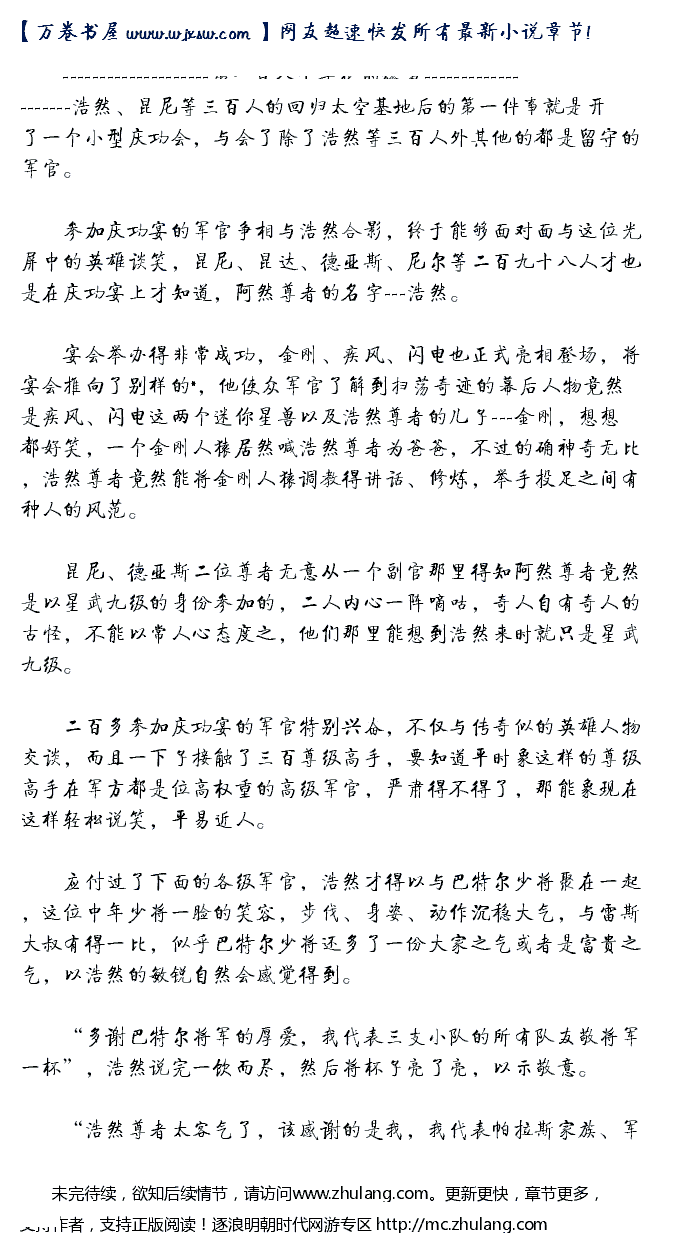 【万卷书屋 www.wjxsw.com 】网友超速快发所有最新小说章节!
-------浩然、昆尼等三百人的回归太空基地后的第一件事就是开
了一个小型庆功会，与会了除了浩然等三百人外其他的都是留守的
军官。
参加庆功宴的军官争相与浩然合影，终于能够面对面与这位光
屏中的英雄谈笑，昆尼、昆达、德亚斯、尼尔等二百九十八人才也
是在庆功宴上才知道，阿然尊者的名字---浩然。
宴会举办得非常成功，金刚、疾风、闪电也正式亮相登场，将
宴会推向了别样的*，他使众军官了解到扫荡奇迹的幕后人物竟然
是疾风、闪电这两个迷你星兽以及浩然尊者的儿子---金刚，想想
都好笑，一个金刚人猿居然喊浩然尊者为爸爸，不过的确神奇无比
，浩然尊者竟然能将金刚人猿调教得讲话、修炼，举手投足之间有
种人的风范。
昆尼、德亚斯二位尊者无意从一个副官那里得知阿然尊者竟然
是以星武九级的身份参加的，二人内心一阵嘀咕，奇人自有奇人的
古怪，不能以常人心态度之，他们那里能想到浩然来时就只是星武
九级。
二百多参加庆功宴的军官特别兴奋，不仅与传奇似的英雄人物
交谈，而且一下子接触了三百尊级高手，要知道平时象这样的尊级
高手在军方都是位高权重的高级军官，严肃得不得了，那能象现在
这样轻松说笑，平易近人。
应付过了下面的各级军官，浩然才得以与巴特尔少将聚在一起
，这位中年少将一脸的笑容，步伐、身姿、动作沉稳大气，与雷斯
大叔有得一比，似乎巴特尔少将还多了一份大家之气或者是富贵之
气，以浩然的敏锐自然会感觉得到。
“多谢巴特尔将军的厚爱，我代表三支小队的所有队友敬将军
一杯”，浩然说完一饮而尽，然后将杯子亮了亮，以示敬意。
“浩然尊者太客气了，该感谢的是我，我代表帕拉斯家族、军
未完待续，欲知后续情节，请访问www.zhulang.com。更新更快，章节更多，
支持作者，支持正版阅读！逐浪明朝时代网游专区 http://mc.zhulang.com